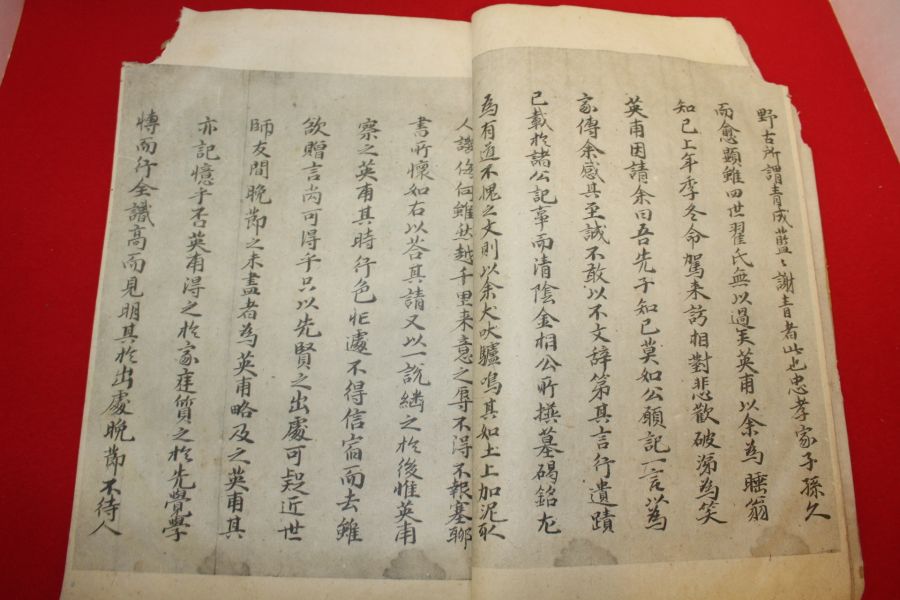 野古所謂青成藍々謝青者此也忠孝家子孫久
而愈顯雖四世翟氏無以過矣英甫以余為睡翁
知已上年季冬命駕来訪相對悲歡破涕為笑
英甫因請余曰吾先子知已莫如公願記一言以為
家傳余感其至誠不敢以不文辞第其言行遺蹟
已載於諸公記事而清陰金相公所撰墓碣銘尤
為有道不愧之文則以余犬吠驢鳴其如土上加泥取
人譏侮何雖然越千里来意之辱不得不報塞聊
書所懷如右以荅其請又以一說繼之於後惟英甫
察之英甫其時行色忙遽不得信宿而去雖
欲贈言尚可得乎只以先賢之出處可疑近世
師友間晚節之未盡者為英甫略及之英甫其
亦記憶乎否英甫得之於家庭質之於先覺學
博而行全識高而見明其於出處晚節不待人